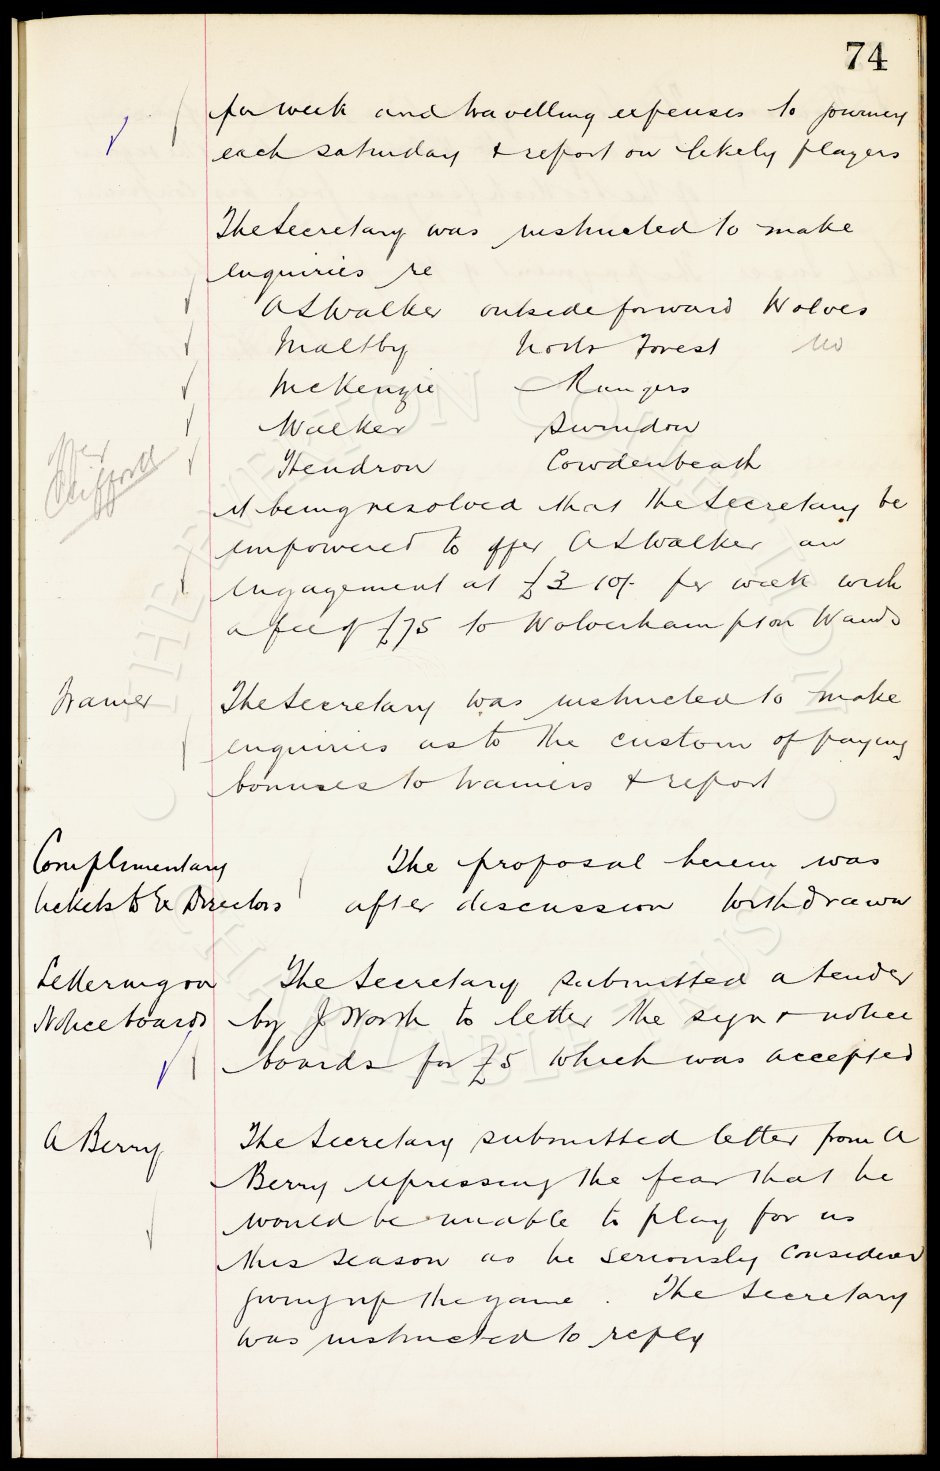 74
per week and travelling expenses to journey
each saturday & report on likely players
The Secretary was instructed to make
enquiries re
A S Walker outside forward Wolves
Maltby Notts Forest No
McKenzie Rangers
Walker Swindon
Hendron Cowdenbeath
Clifford
it being resolved that the Secretary be
empowered to offer A S Walker an
engagement at £3 10/- per week with
a fee of £75 to Wolverhampton Wands
Trainer
The Secretary was instructed to make
enquiries as to the custom of paying
bonuses to trainers & report
Complimentary
tickets to Ex Directors
The proposal herein was
after discussion withdrawn
Lettering on
Notice boards
The Secretary submitted a tender
by J Worth to letter the sign & notice
boards for £5 which was accepted
A Berry
The Secretary submitted letter from A
Berry expressing the fear that he
would be unable to play for us
this season as he seriously considered
giving up the game. The Secretary
was instructed to reply